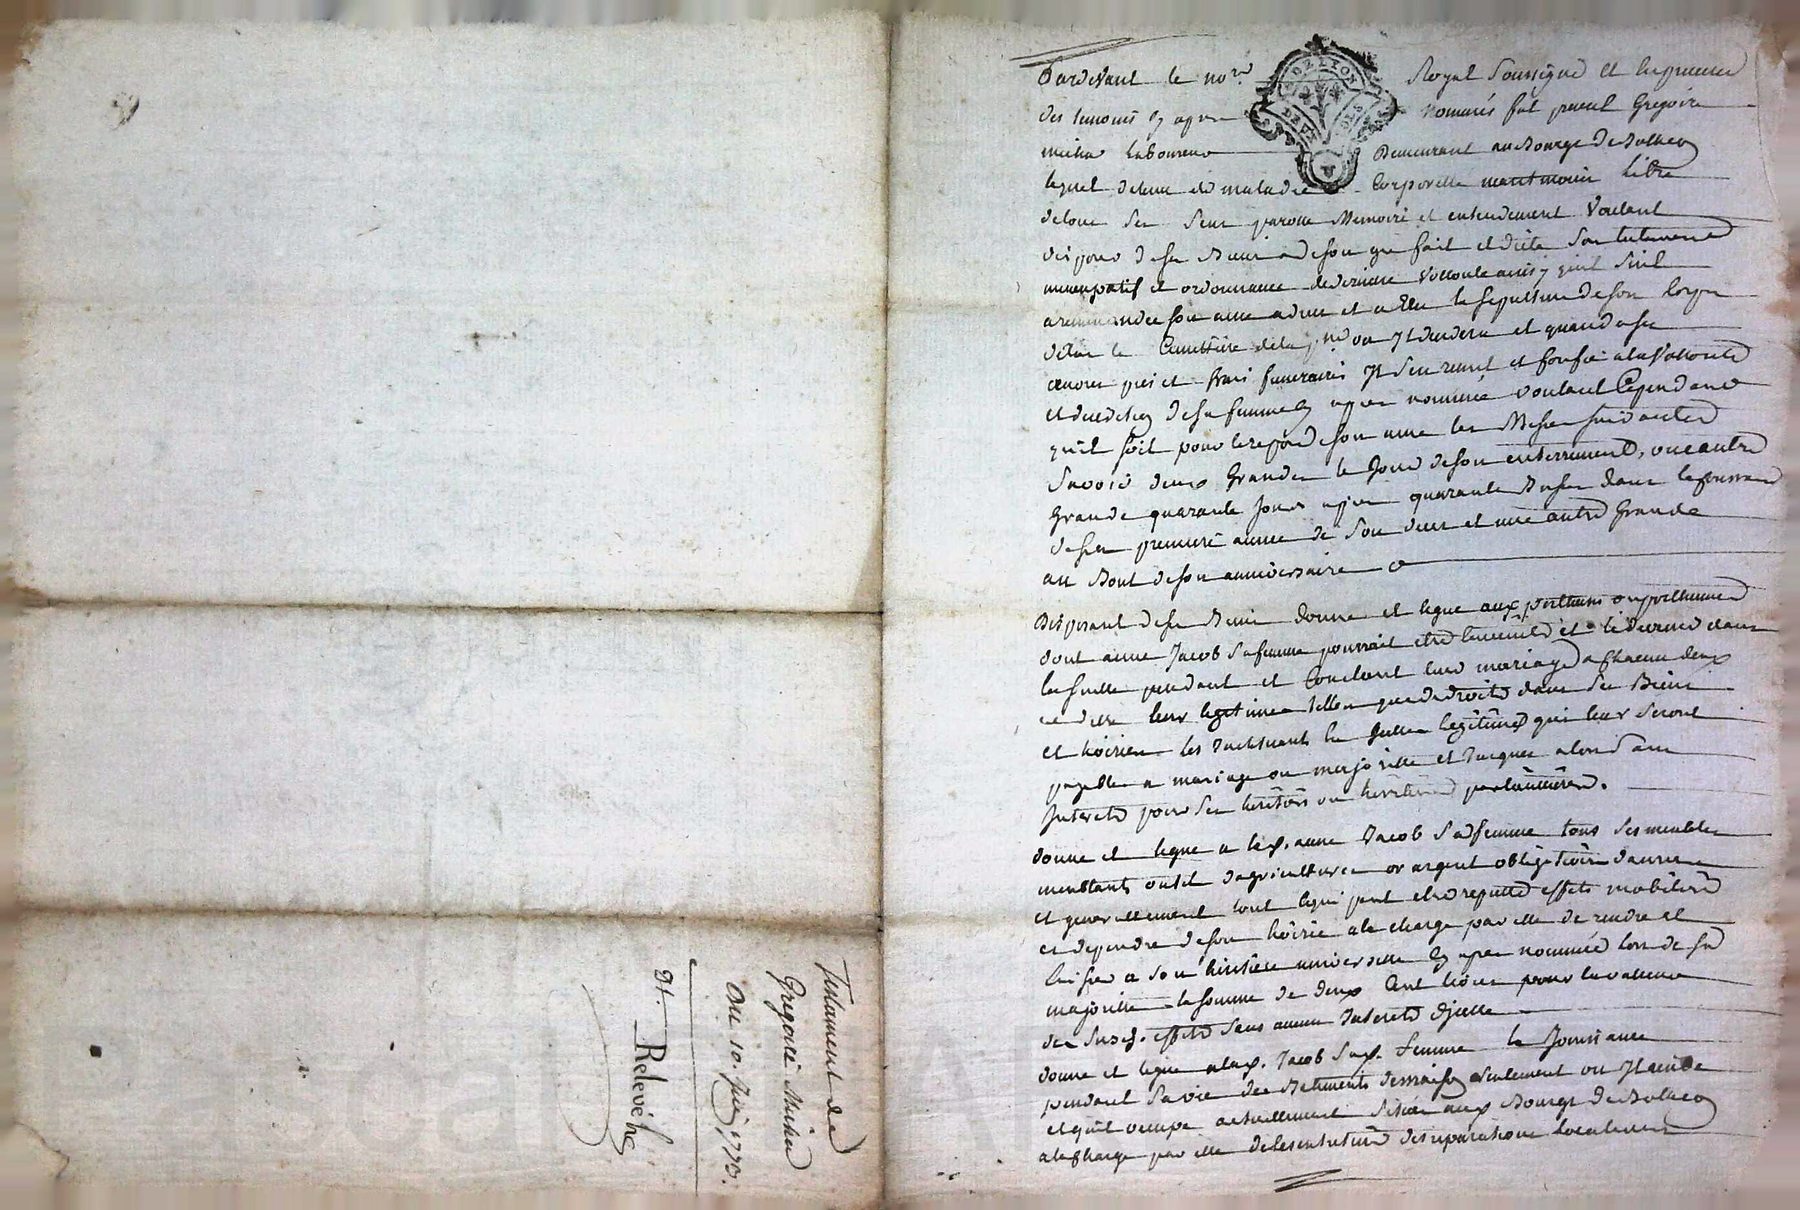 Testament de
Gregoire Michea
Du 10. Juin 1773.
Relevé
Pardevant le no.re Royal soussigné et en presence
des temoins cy apres nommés fut present Gregoire
michea laboureur Demeurant au Bourg de
lequel detenu de maladie Corporelle neantmoins libre
de tous ses sens parolle Memoire et entendement Voulant
disposer de ses Biens de son gré fait et dicte son testament
nuncupatif et ordonnance de derniere Vollonté ainsy quil suit
a recommandée son ame a dieu et a Elu la sepulture de son corps
dans le Cimettiere de la ou Il decedera et quand a ses
œuvres pies et frais funeraires Il s'en remet et confie a la Vollonté
et discretion de sa femme cy apres nommée voulant Cependant
quil soit pour le repos de son ame les Messes suivantes
Savoir deux Grandes le Jour de son enterrement, une autre
Grande quarante Jours apres quarante Basses dans le courrant
de la premiere année de son deces et une autre Grande
au Bout de son anniversaire
Disposant de ses Biens donne et legue aux posthumes ou posthume
dont anne Jacob sa femme pourrait etre enceinte et
la suitte pendant et Constant leur mariage a Chacun deux
leur legitime telle que de droit dans ses Biens
et hoirie les Instituants les quelles legitimes qui leur seront
payables a mariage ou majorité et Jusques alors sans
Interets pour ses heritiers ou heritieres particulieres.
donne et legue a lad. anne Jacob sa femme tous ses meubles
meublants outils dagriculture or argent obligations
et generallement tout ce qui peut etre reputté effets mobiliers
et dependre de son hoirie a la charge par elle de rendre et
a son heritiere universelle cy apres nommée lors de sa
majorité la somme de deux Cent livres pour la valleur
des susd. effets sans aucun Interets d'icelle
donne et legue a lad. Jacob sad. femme la Jouissance
pendant sa vie des Batiments seulement ou Il reside
et quil occupe actuellement situés aux Bourg de
a la Charge par elle de les entretenir des reparations locatives